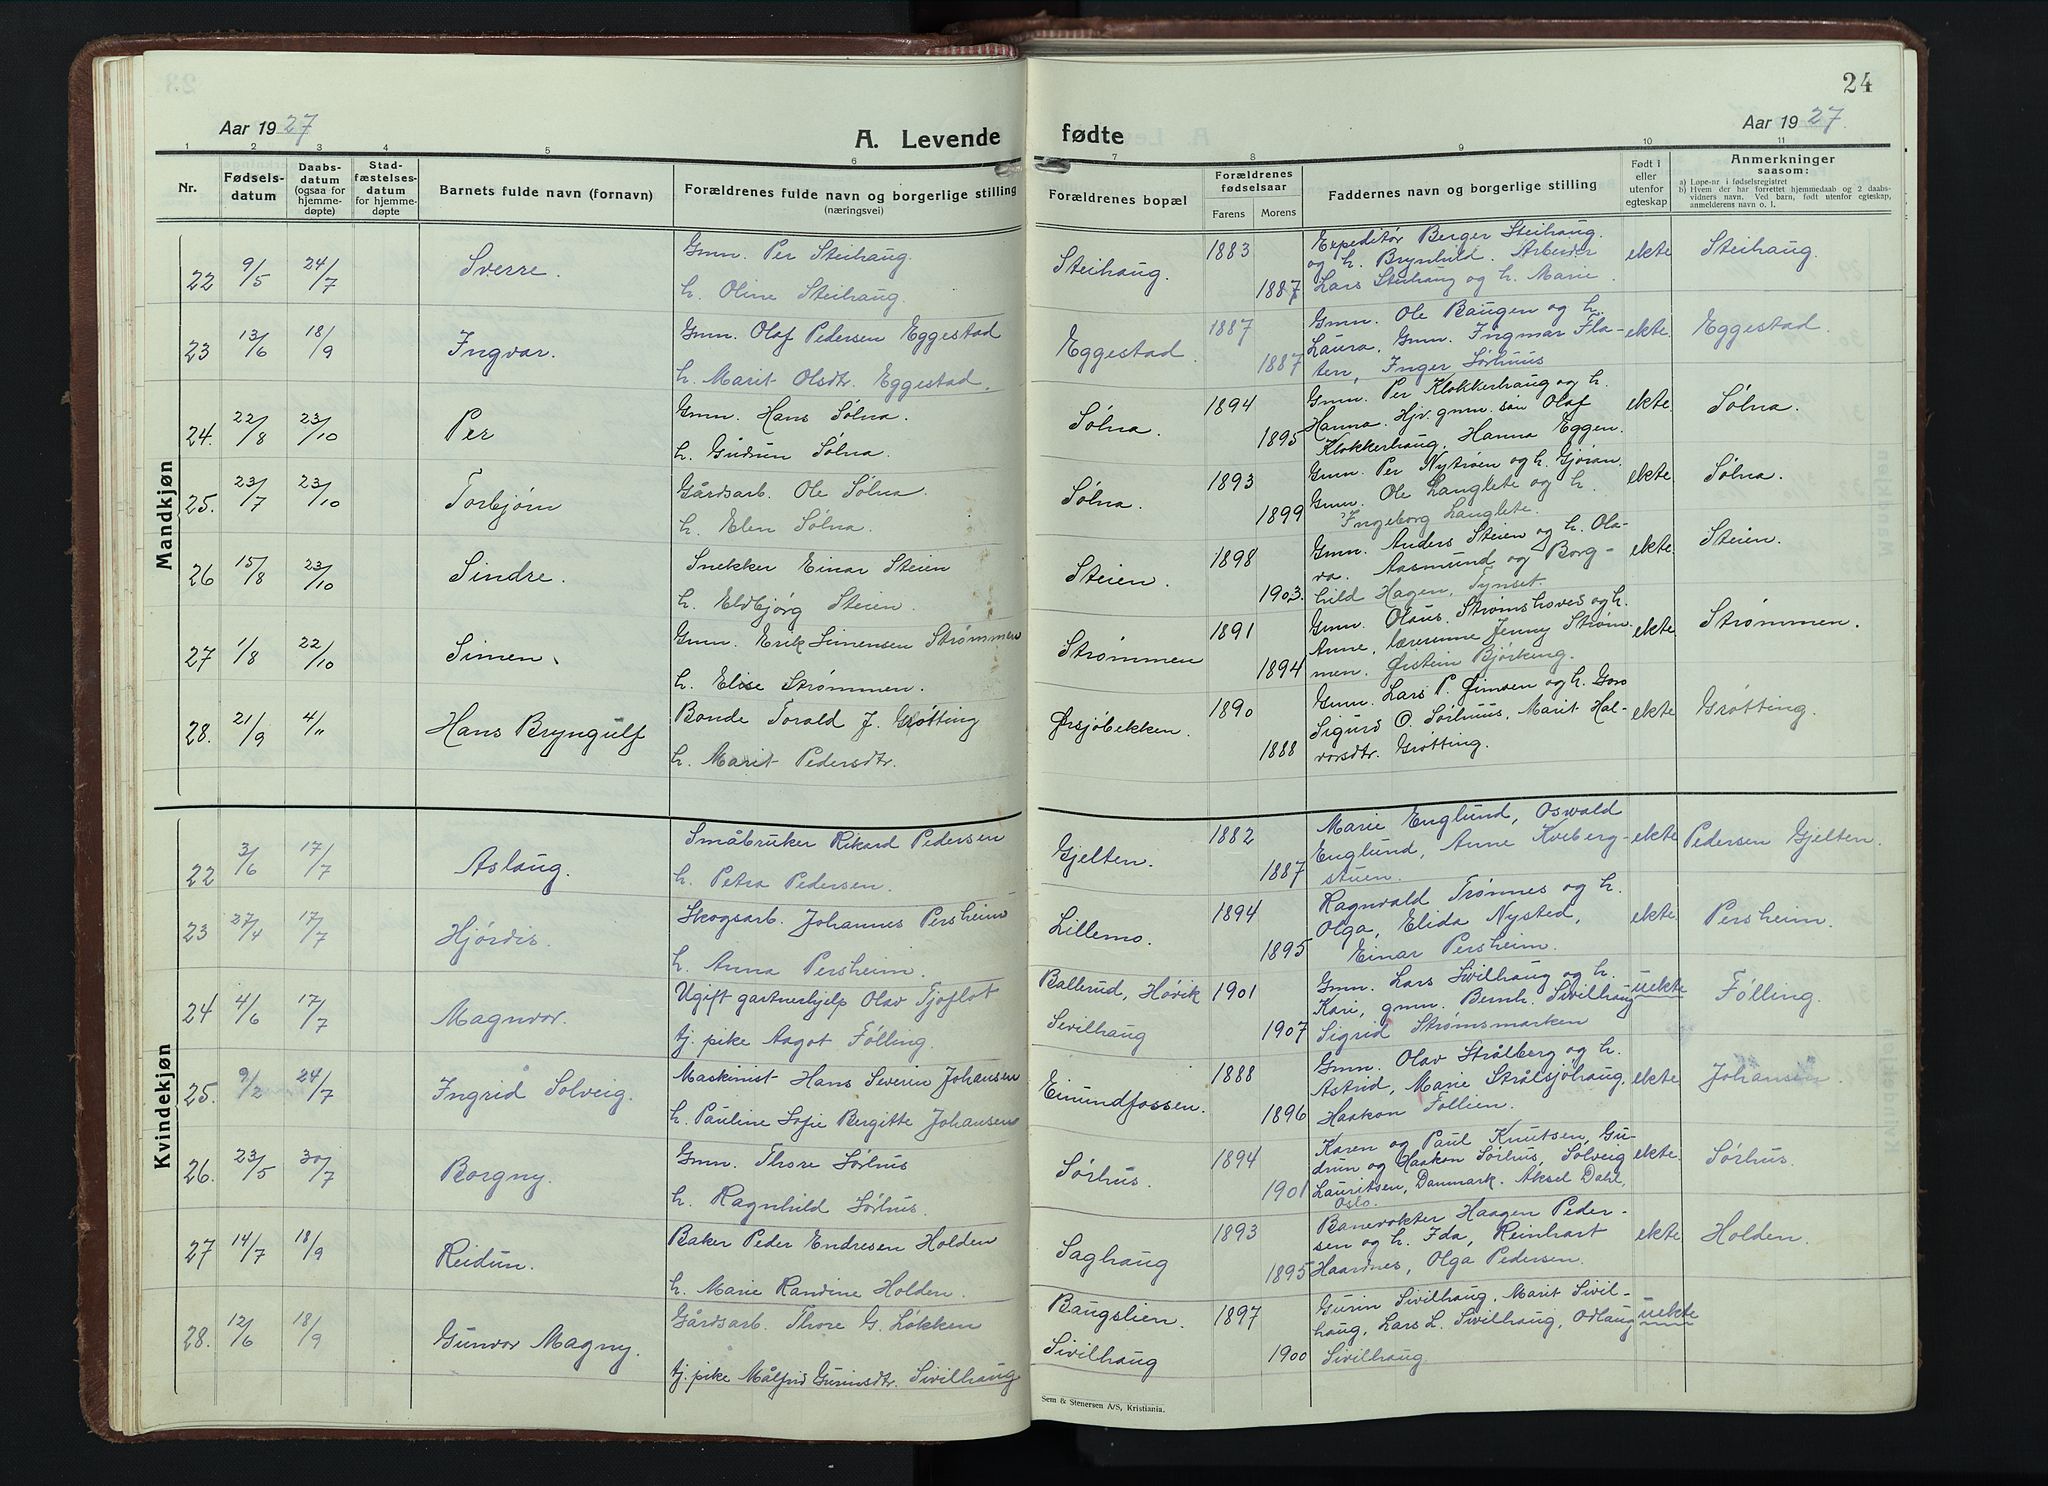 24
Aar 1927
A. Levende fødte
Aar 1927.
1 2 3 4 5 6 7 8 9 10 11
Nr.
Fødsels-
datum
Daabs-
datum
(ogsaa for
hjemme-
døpte)
Stad-
fæstelses-
datum
for hjemme-
døpte
Barnets fulde navn (fornavn)
Forældrenes fulde navn og borgerlige stilling
(næringsvei)
Forældrenes bopæl
Forældrenes
fødselsaar
Farens Morens
Faddernes navn og borgerlige stilling
Født i
eller
utenfor
egteskap
Anmerkninger
saasom:
a) Løpe-nr i fødselsregistret
b) Hvem der har forrettet hjemmedaab og 2 daabs-
vidners navn. Ved barn, født utenfor egteskap,
anmelderens navn o. l.
Mandkjøn
22 9/5 24/7 Sverre.
Gmn. Per Steihaug.
h. Oline Steihaug.
Steihaug. 1883 1887
Expeditør Berger Steihaug.
og h. Brynhild. Arbeider
Lars Steihaug og h. Marie.
ekte Steihaug.
23 13/6 18/9 Ingvar.
Gmn. Olaf Pedersen Eggestad
h. Marit Olsdtr. Eggestad.
Eggestad. 1887 1887
Gmn. Ole Baugen og h.
Laura, Gmn. Ingmar Fla-
ten, Inger Sørhuus
ekte. Eggestad.
24. 22/8 23/10 Per
Gmn. Hans Sølna.
h. Gudrun Sølna.
Sølna. 1894 1895
Gmn. Per Klokkerhaug og h.
Hanna. Hjv. gmn. søn Olaf
Klokkerhaug, Hanna Eggen.
ekte. Sølna.
25. 23/7 23/10 Torbjørn
Gårdsarb. Ole Sølna.
h. Elen Sølna.
Sølna. 1893 1899
Gmn. Per Nytrøen og h. Gjøran.
Gmn. Ole Langlete og h.
Ingeborg Langlete.
ekte. Sølna.
26 15/8 23/10 Sindre.
Snekker Einar Steien
h. Eldbjørg Steien.
Steien. 1898 1903.
Gmn. Anders Steien og h. Ola-
va. Aasmund og Borg-
hild Hagen, Tynset.
ekte. Steien.
27 1/8 22/10 Simen.
Gmn. Erik Simensen Strømmen
h. Elise Strømmen.
Strømmen 1891 1894
Gmn. Olaus Strømshoved og h.
Anne, lærerinne Jenny Strøm-
men. Øistein Bjørkeng.
ekte. Strømmen.
28. 21/9 4/11 Hans Bryngulf
Bonde Torald J. Grøtting
h. Marit Pedersdtr.
Ørsjøbekken. 1890 1888
Gmn. Lars P. Øimoen og h. Goro
Sigurd O. Sørhuus, Marit Hal-
vorsdtr. Grøtting.
ekte Grøtting.
Kvindekjøn
22 3/6 17/7 Aslaug.
Småbruker Rikard Pedersen
h. Petra Pedersen.
Gjelten. 1882 1887
Marie Englund, Oswald
Englund, Anne Kveberg-
stuen.
ekte Pedersen Gjelten.
23 27/4 17/7 Hjørdis.
Skogsarb. Johannes Persheim
h. Anna Persheim.
Lillemo. 1894 1895
Ragnvald Trønnes og h.
Olga, Elida Nysted,
Einar Persheim.
ekte Persheim.
24 4/6 17/7 Magnvor.
Ugift gartnerhjelp Olav Tjoflot
tj. pike Aagot Følling.
Ballerud, Høvik 1901
Sivilhaug 1907
Gmn. Lars Sivilhaug og h.
Kari, gmn. Bernh. Sivilhaug
Sigrid Strømsmarken
uekte Følling.
25. 9/2 24/7 Ingrid Solveig.
Maskinist Hans Severin Johansen
h. Pauline Sofie Bergitte Johansen
Einundfossen. 1888 1896
Gmn. Olav Strålberg og h.
Astrid, Marie Strålsjøhaug.
Haakon Follien.
ekte Johansen.
26. 23/5 30/7 Borgny.
Gmn. Thore Sørhus
h. Ragnhild Sørhus.
Sørhus. 1894 1901
Karen og Paul Knutsen, Gu-
drun og Haakon Sørhus, Solveig
Lauritsen, Danmark. Aksel Dahl,
Oslo.
ekte. Sørhus.
27 14/7 18/9 Reidun.
Baker Peder Endresen Holden
h. Marie Randine Holden.
Saghaug 1893 1895
Banevokter Haagen Peder-
sen og h. Ida, Reinhart
Haardnes, Olga Pedersen.
ekte Holden.
28. 12/6 18/9 Gunvor Magny.
Gårdsarb. Thore G. Løkken
tj. pike Målfrid Gurinsdtr. Sivilhaug
Baugslien. 1897
Sivilhaug 1900
Gurin Sivilhaug, Marit Sivil-
haug, Lars L. Sivilhaug, Odlaug
Sivilhaug.
uekte
Sem & Stenersen A/S, Kristiania.